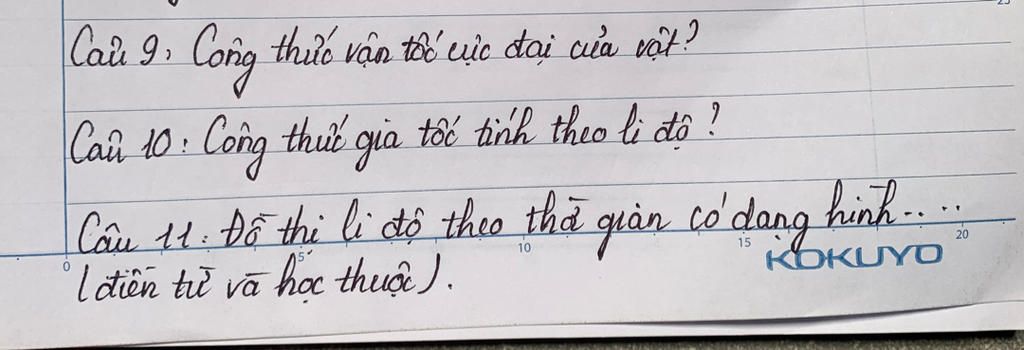 Câu 9: Công thức vận tốc cực đại của vật?
Câu 10: Công thức gia tốc tính theo li độ?
Câu 11: Đồ thị li độ theo thời gian có dạng hình....
0 5 10 15 20
KOKUYO
(điền từ và học thuộc).